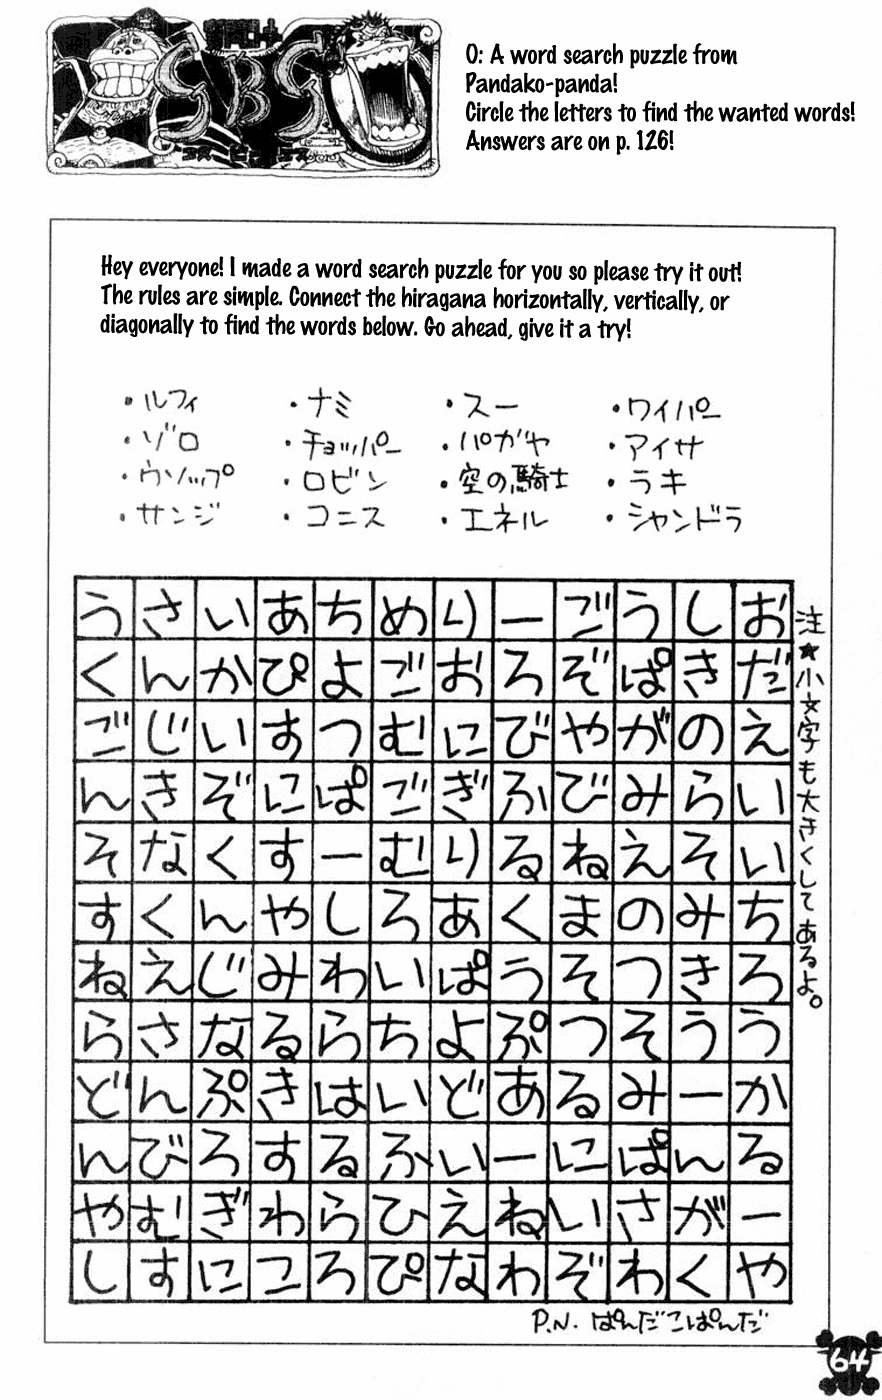 SBS
エス ビー エス
O: A word search puzzle from
Pandako-panda!
Circle the letters to find the wanted words!
Answers are on p. 126!
Hey everyone! I made a word search puzzle for you so please try it out!
The rules are simple. Connect the hiragana horizontally, vertically, or
diagonally to find the words below. Go ahead, give it a try!
・ルフィ ・ナミ ・スー ・ワイパー
・ゾロ ・チョッパー ・パガヤ ・アイサ
・ウソップ ・ロビン ・空の騎士 ・ラキ
・サンジ ・コニス ・エネル ・シャンドラ
うさいあちめりーごうしお
くんかぴよごおろぞぱきだ
ごじいすつむにびやがのえ
んきぞにぱごぎふびみらい
そなくすーむりるねえそい
すくんやしろあくまのみち
ねえじみわいぱうそつきろ
らさなるらちよぷつそうう
どんぷきはいどあるみーか
んびろするふいーにぱんる
やむぎわらひえねいさがー
しすにころぴなわぞわくや
注★小文字も大きくしてあるよ。
P.N. ぱんだこぱんだ
64